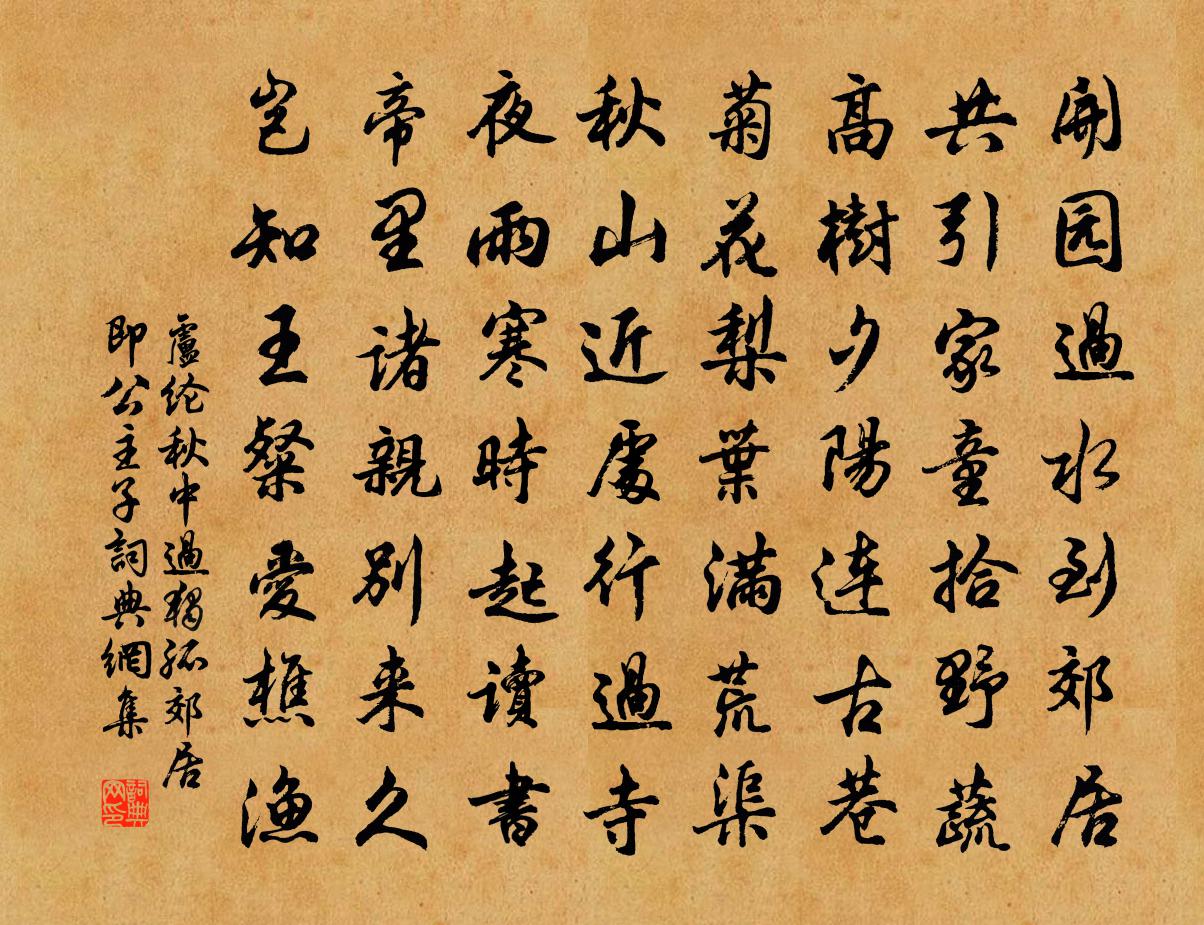 開园過水到郊居
共引家童拾野蔬
高樹夕陽连古巷
菊花梨葉满荒渠
秋山近處行過寺
夜雨寒時起讀書
帝里诸親别来久
岂知王粲愛樵渔
盧纶秋中過獨孤郊居
即公主子詞典網集
詞典网印